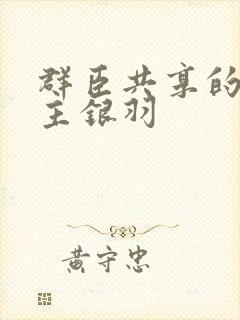 群臣共享的
主银羽
黄守忠